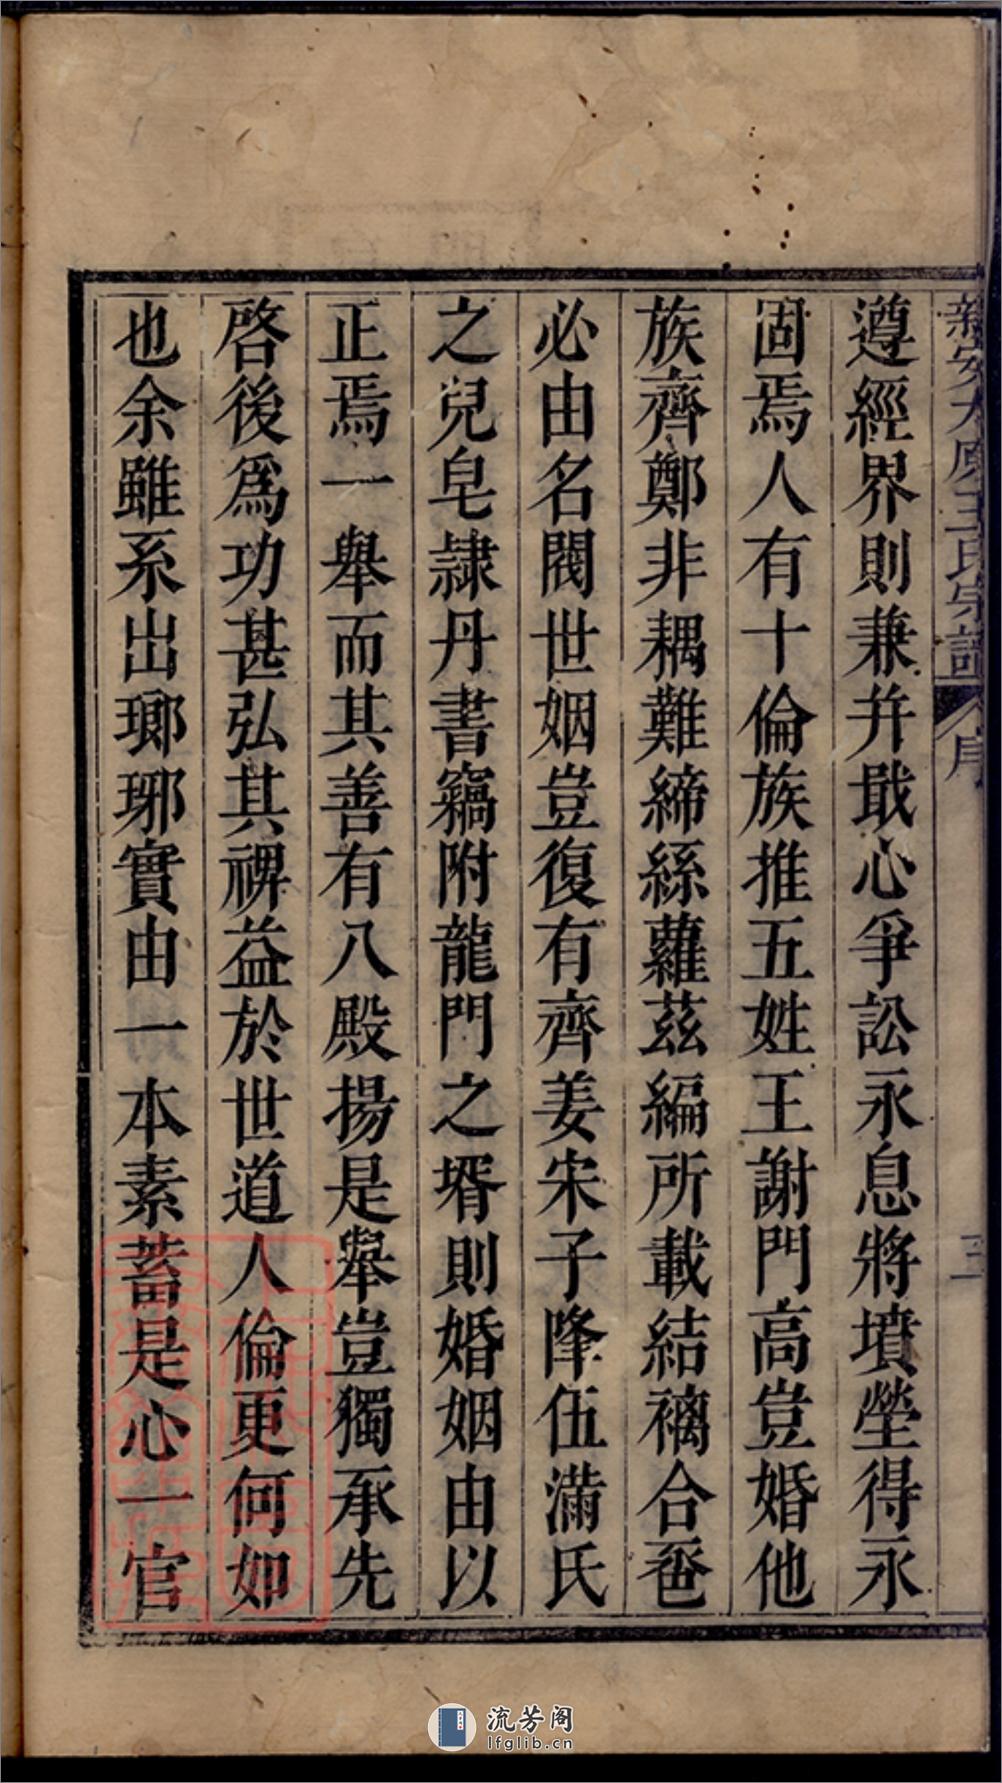 新安太原王氏宗譜 序 三
遵經界則兼并戢心爭訟永息將墳塋得永
固焉人有十倫族推五姓王謝門高豈婚他
族齊鄭非耦難締絲蘿茲編所載結褵合卺
必由名閥世姻豈復有齊姜宋子降伍滿氏
之兒皂隷丹書竊附龍門之壻則婚姻由以
正焉一舉而其善有八殿揚是舉豈獨承先
啓後爲功甚弘其裨益於世道人倫更何如
也余雖系出瑯琊實由一本素蓄是心一官
流芳阁
lfglib.cn